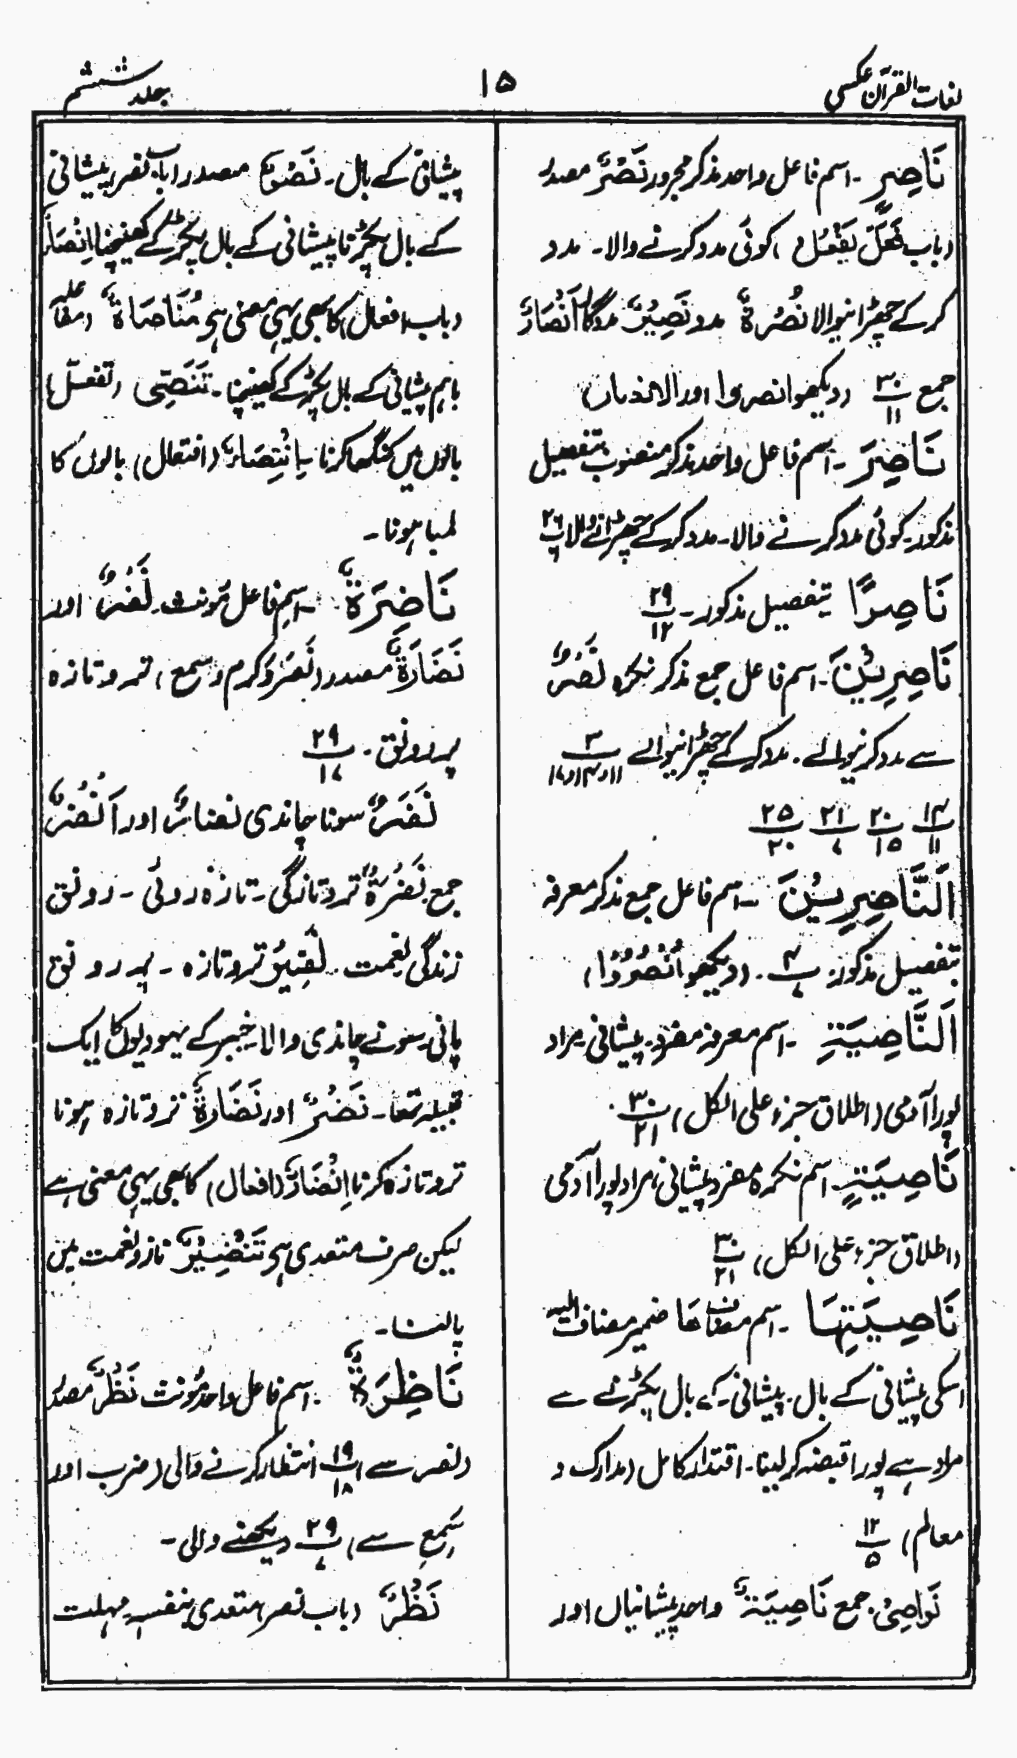 لغات القرآن عکسی
۱۵
جلد ششم
نَاصِرٍ ۔ اسم فاعل واحد مذکر مجرور نَصْرٌ مصدر
(باب فَعَلَ یَفْعُلُ) کوئی مدد کرنے والا۔ مدد
کر کے چھڑانیوالا نُصْرَةٌ مدد نَصِیْرٌ مددگار اَنْصَارٌ
جمع ۳۰/۱۱ (دیکھو انصروا اور الانصار)
نَاصِرَ ۔ اسم فاعل واحد مذکر منصوب بتفصیل
مذکور۔ کوئی مدد کرنے والا۔ مدد کر کے چھڑانے والا ۲۶/۶
نَاصِرًا بتفصیل مذکور۔ ۲۹/۱۲
نَاصِرِیْنَ ۔ اسم فاعل جمع مذکر نکرہ نَصْرٌ
سے مدد کرنیوالے۔ مدد کر کے چھڑانیوالے ۳/۱۱و۱۴و۱۷
۱۴/۱۱ ۲۰/۱۵ ۲۱/۷ ۲۵/۲۰
اَلنَّاصِرِیْنَ ۔ اسم فاعل جمع مذکر معرفہ
بتفصیل مذکور ۴/۷ ۔ (دیکھو اُنْصُرُوْا)
اَلنَّاصِیَةِ ۔ اسم معرفہ مفرد۔ پیشانی مراد
پورا آدمی (اطلاق جزء علی الکل) ۳۰/۲۱
نَاصِیَةٍ اسم نکرہ مفرد پیشانی، مراد پورا آدمی
(اطلاق جزء علی الکل) ۳۰/۲۱
نَاصِیَتِهَا ۔ اسم مضاف ھا ضمیر مضاف الیہ
اسکی پیشانی کے بال۔ پیشانی کے بال پکڑنے سے
مراد ہے پورا قبضہ کر لینا۔ اقتدار کامل (مدارک و
معالم) ۱۲/۵
نَوَاصِیْ جمع نَاصِیَةٌ واحد پیشانیاں اور
پیشانی کے بال۔ نَصْوٌ مصدر (باب نصر) پیشانی
کے بال پکڑنا پیشانی کے بال پکڑ کے کھینچنا اِنْصَاءٌ
(باب افعال) کا بھی یہی معنی ہی مُنَاصَاةٌ (مفاعلہ)
باہم پیشانی کے بال پکڑ کے کھینچنا۔ تَنَصِّی (تفعل)
بالوں میں کنگھا کرنا یا اِنْتِصَاءٌ (افتعال) بالوں کا
لمبا ہونا۔
نَاضِرَةٌ ۔ اسم فاعل مونث۔ نَضْرٌ اور
نَضَارَةٌ مصدر (نَصَرَ و کرم و سمع) تر و تازہ
پر رونق۔ ۲۹/۱۷
نَضْرٌ سونا چاندی نضارٌ اور اَنْضُرٌ
جمع نَضْرَةٌ تروتازگی۔ تازہ روئی۔ رونق
زندگی نعمت۔ نَضِیْرٌ تروتازہ ۔ پر رونق
پانی، سونے چاندی والا خیبر کے یہودیوں کا ایک
قبیلہ تھا۔ نَضْرٌ اور نَضَارَةٌ تروتازہ ہونا
تروتازہ کرنا اِنْضَارٌ (افعال) کا بھی یہی معنی ہے
لیکن صرف متعدی ہی تَنْضِیْرٌ ناز و نعمت میں
پالنا۔
نَاظِرَةٌ ۔ اسم فاعل واحد مونث نَظْرٌ مصدر
(نصر سے) ۱۹/۱۸ انتظار کرنے والی (ضرب اور
سَمِعَ سے) ۲۹/۷ دیکھنے والی۔
نَظْرٌ (باب نصر) متعدی بنفسہ مہلت